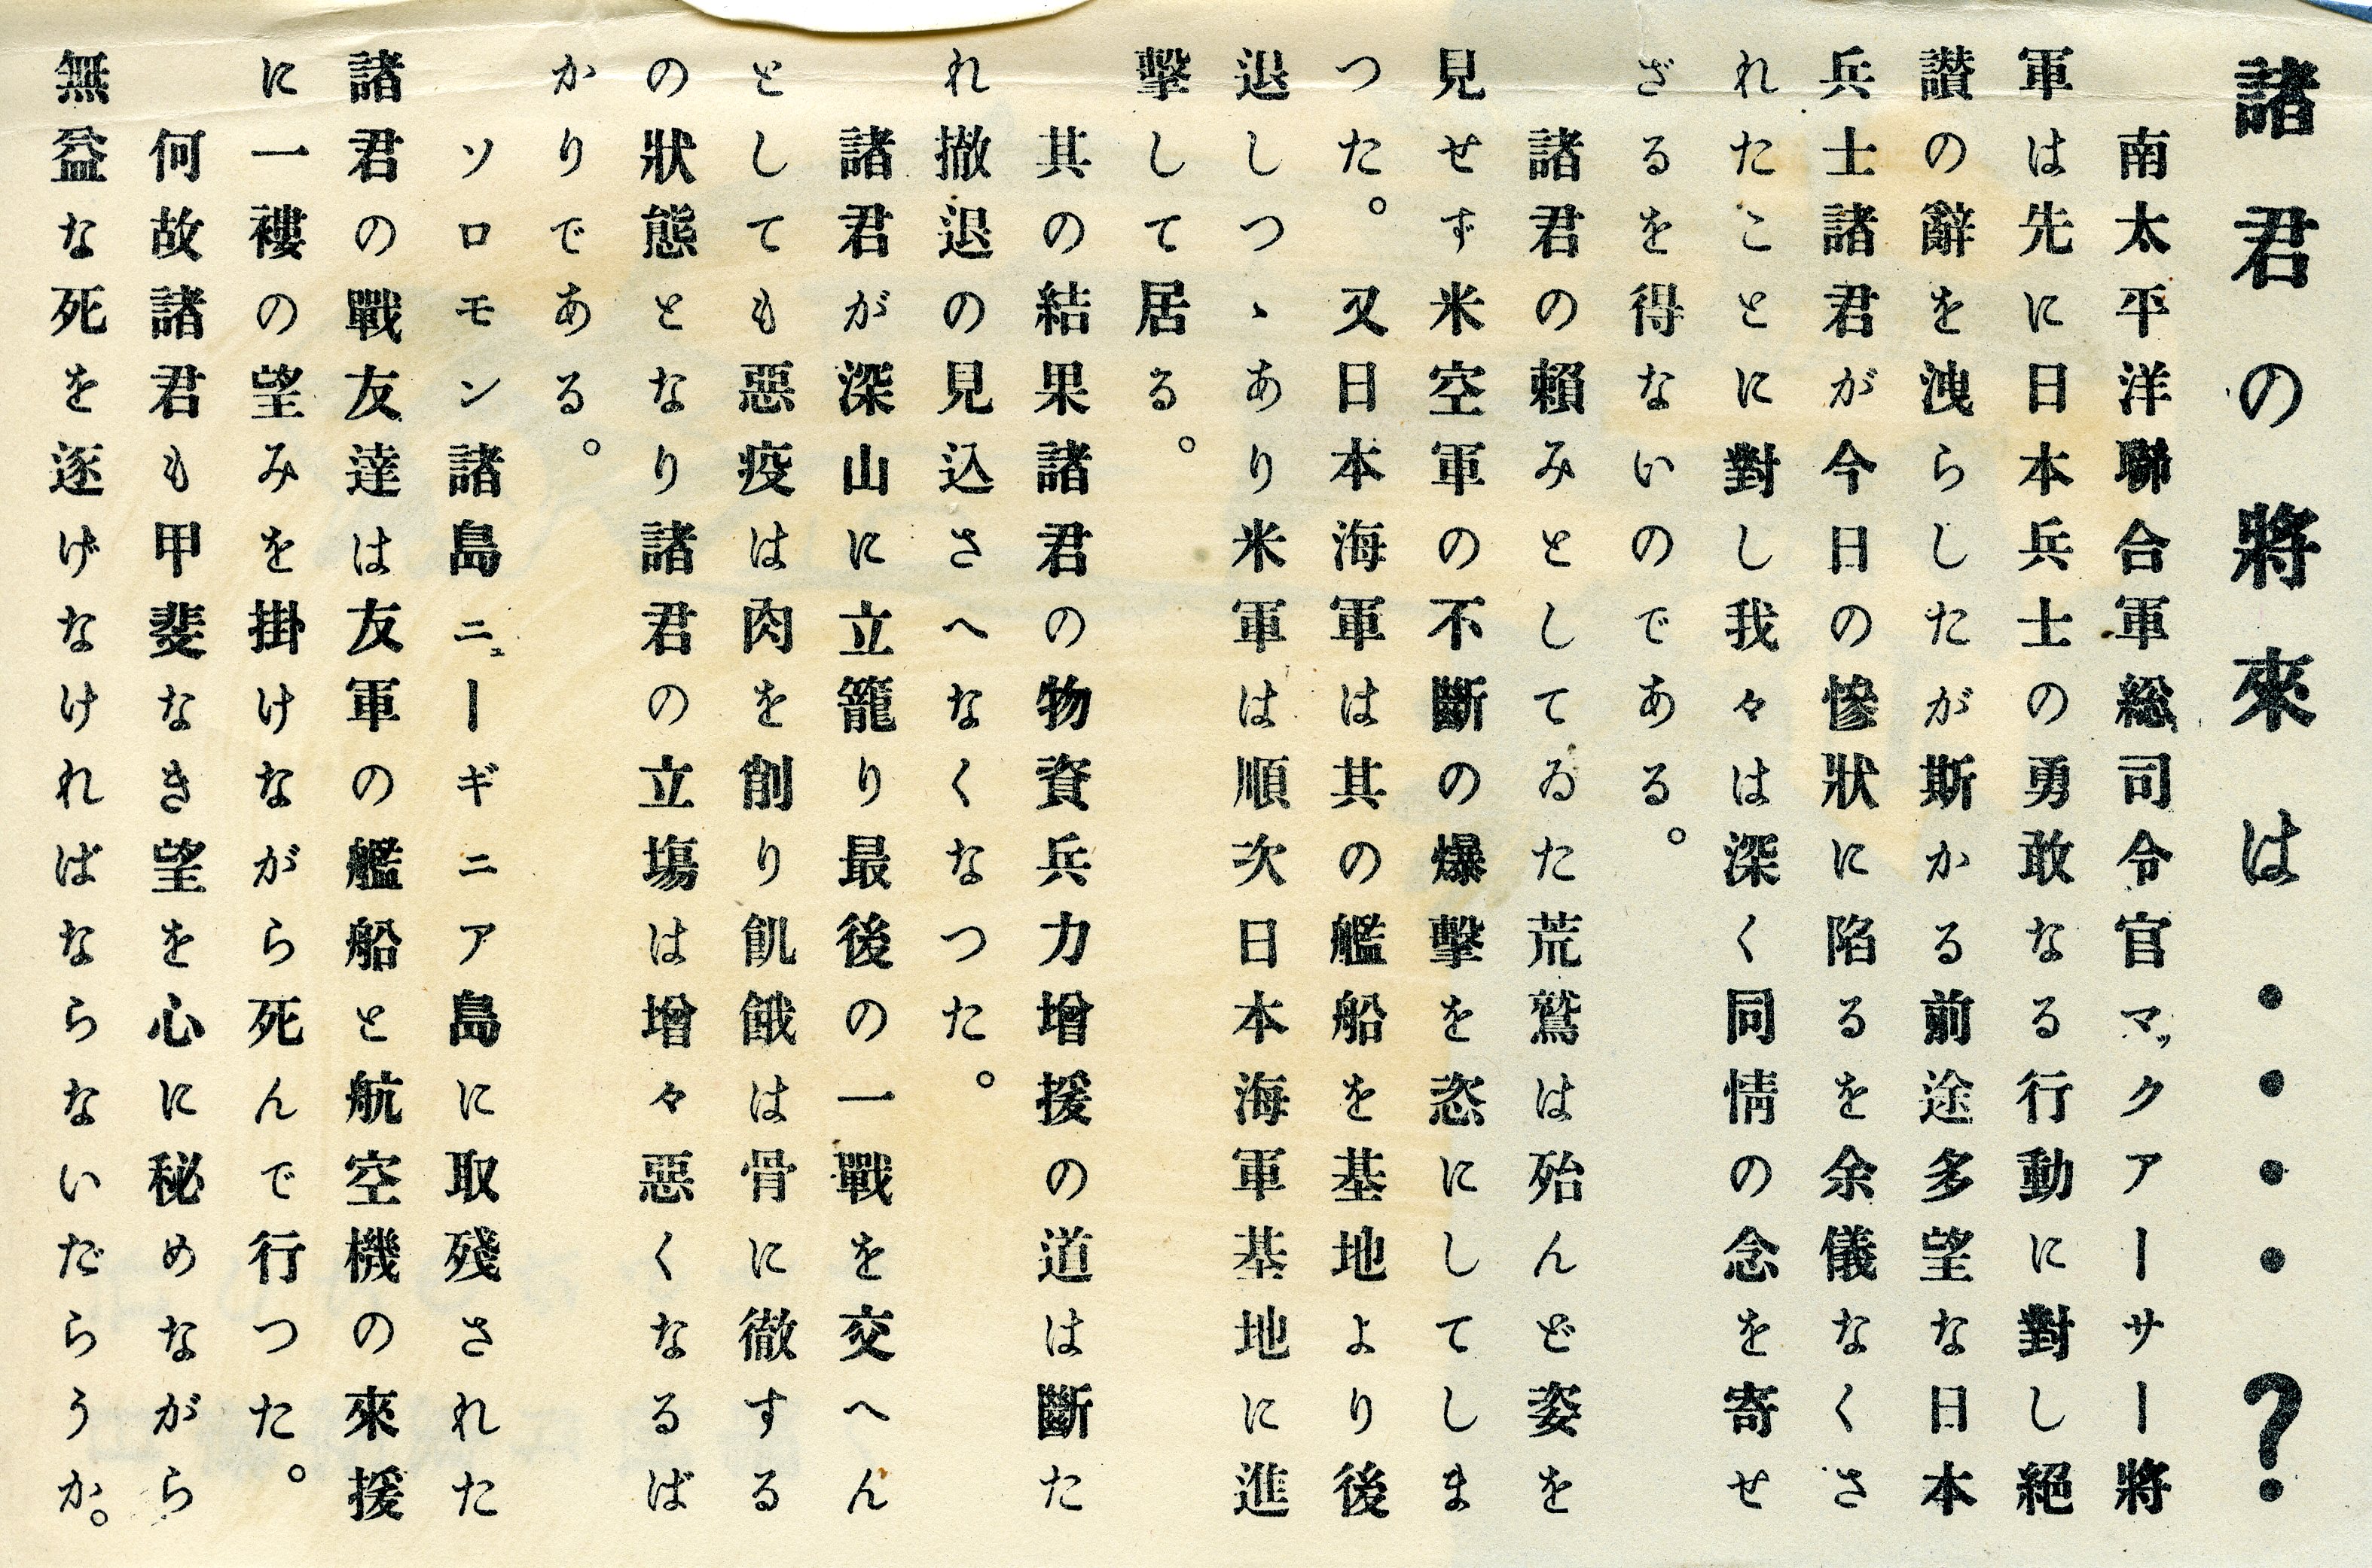 諸君の將來は・・・・?
南太平洋聯合軍総司令官マックアーサー將
軍は先に日本兵士の勇敢なる行動に對し絕
讃の辭を洩らしたが斯かる前途多望な日本
兵士諸君が今日の慘狀に陷るを余儀なくさ
れたことに對し我々は深く同情の念を寄せ
ざるを得ないのである。
諸君の賴みとしてゐた荒鷲は殆んど姿を
見せず米空軍の不斷の爆擊を恣にしてしま
つた。又日本海軍は其の艦船を基地より後
退しつゝあり米軍は順次日本海軍基地に進
擊して居る。
其の結果諸君の物資兵力增援の道は斷た
れ撤退の見込さへなくなつた。
諸君が深山に立籠り最後の一戰を交へん
としても惡疫は肉を削り飢餓は骨に徹する
の狀態となり諸君の立場は增々悪くなるば
かりである。
ソロモン諸島ニューギニア島に取殘された
諸君の戰友達は友軍の艦船と航空機の來援
に一褸の望みを掛けながら死んで行つた。
何故諸君も甲斐なき望を心に秘めながら
無益な死を逐げなければならないだらうか。